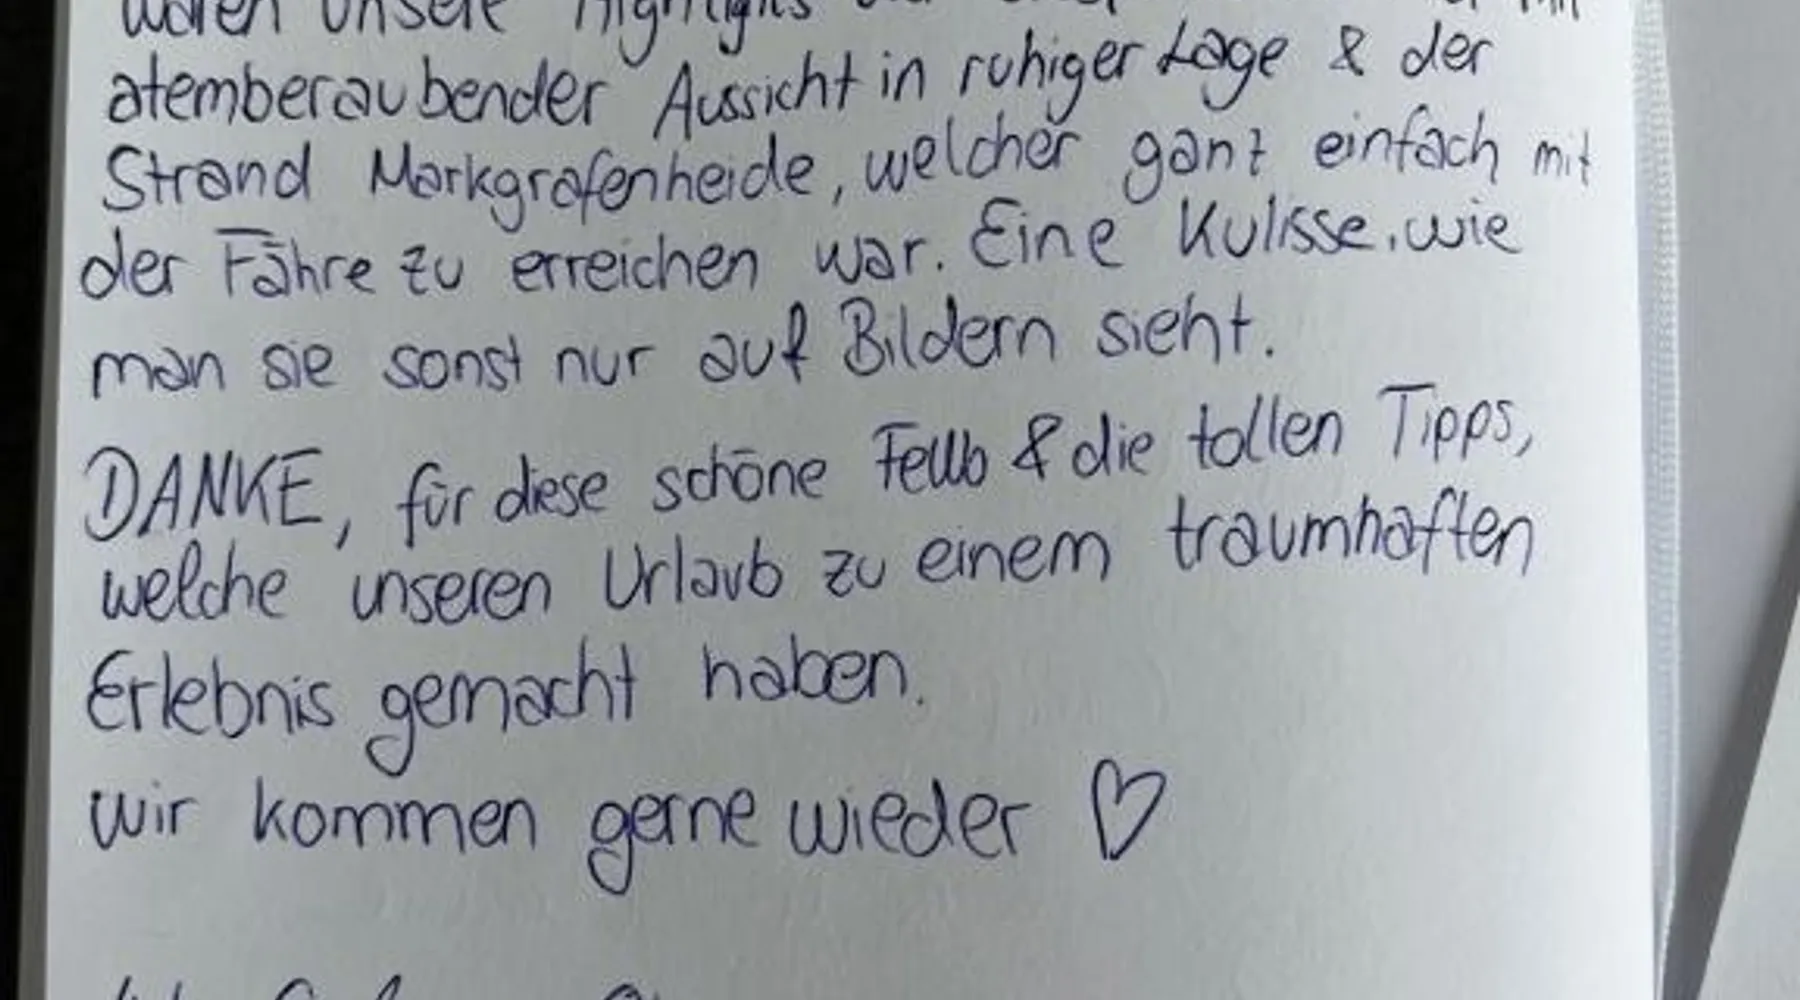 waren unsere Highlights
atemberaubender Aussicht in ruhiger Lage & der
Strand Markgrafenheide, welcher ganz einfach mit
der Fähre zu erreichen war. Eine Kulisse, wie
man sie sonst nur auf Bildern sieht.
DANKE, für diese schöne FeWo & die tollen Tipps,
welche unseren Urlaub zu einem traumhaften
Erlebnis gemacht haben.
wir kommen gerne wieder ♡